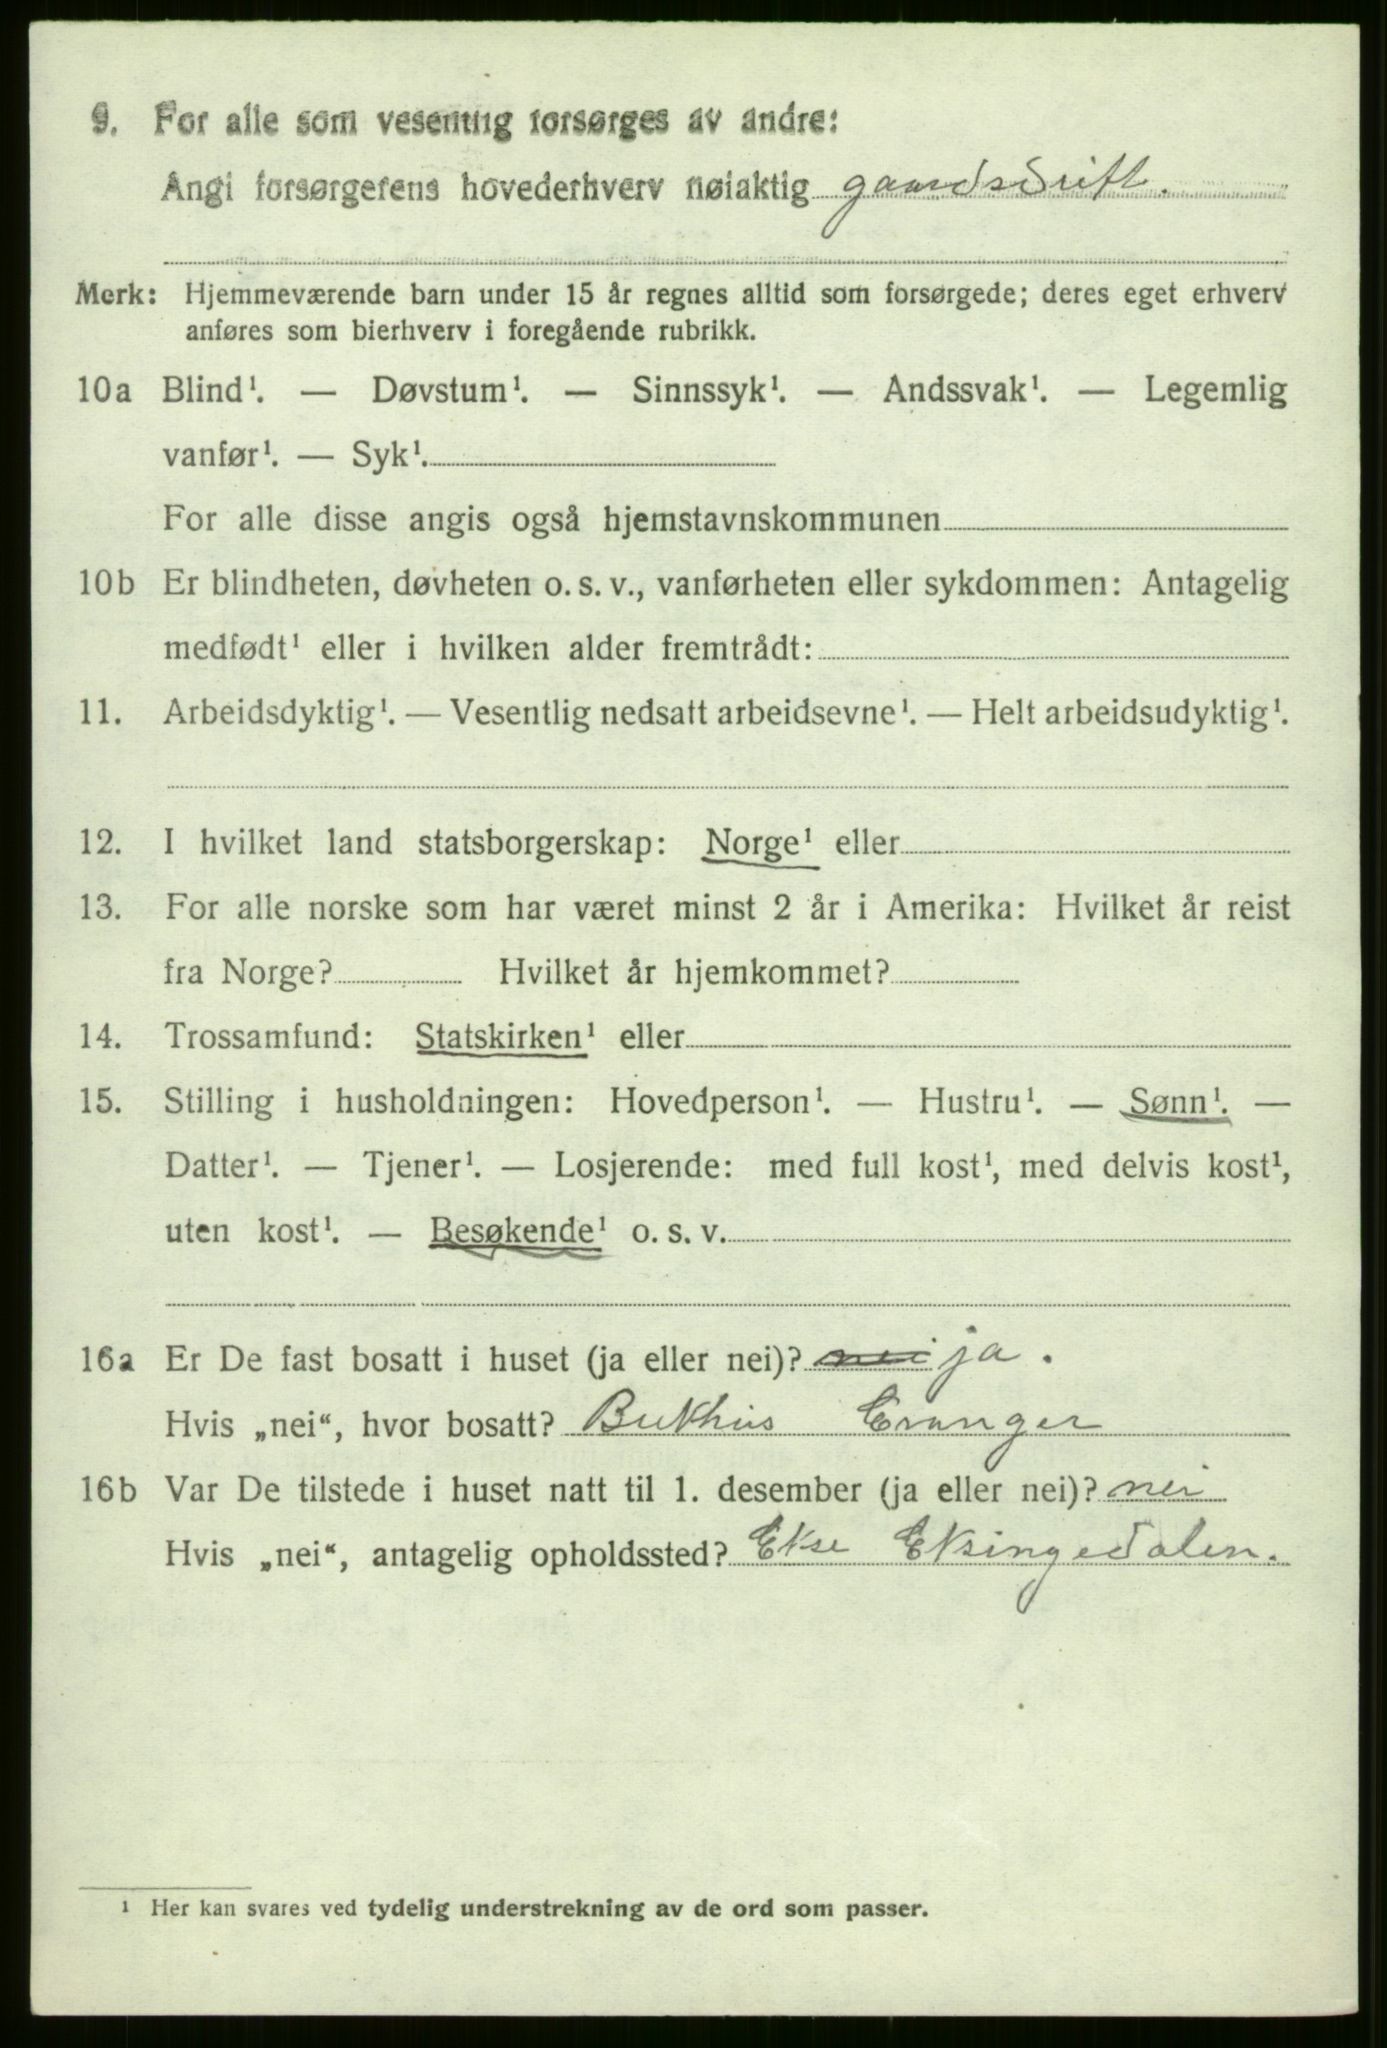 9. For alle som vesentlig forsørges av andre:
Angi forsørgerens hovederhverv nøiaktig gaardsdrift.
Merk: Hjemmeværende barn under 15 år regnes alltid som forsørgede; deres eget erhverv
anføres som bierhverv i foregående rubrikk.
10a Blind¹. — Døvstum¹. — Sinnssyk¹. — Andssvak¹. — Legemlig
vanfør¹. — Syk¹.
For alle disse angis også hjemstavnskommunen
10b Er blindheten, døvheten o. s. v., vanførheten eller sykdommen: Antagelig
medfødt¹ eller i hvilken alder fremtrådt:
11. Arbeidsdyktig¹. — Vesentlig nedsatt arbeidsevne¹. — Helt arbeidsudyktig¹.
12. I hvilket land statsborgerskap: Norge¹ eller
13. For alle norske som har været minst 2 år i Amerika: Hvilket år reist
fra Norge? Hvilket år hjemkommet?
14. Trossamfund: Statskirken¹ eller
15. Stilling i husholdningen: Hovedperson¹. — Hustru¹. — Sønn¹. —
Datter¹. — Tjener¹. — Losjerende: med full kost¹, med delvis kost¹,
uten kost¹. — Besøkende¹ o. s. v.
16a Er De fast bosatt i huset (ja eller nei)? nei ja.
Hvis „nei“, hvor bosatt? Bukhus Evanger
16b Var De tilstede i huset natt til 1. desember (ja eller nei)? nei
Hvis „nei“, antagelig opholdssted? Ekse Eksingedalen.
¹ Her kan svares ved tydelig understrekning av de ord som passer.